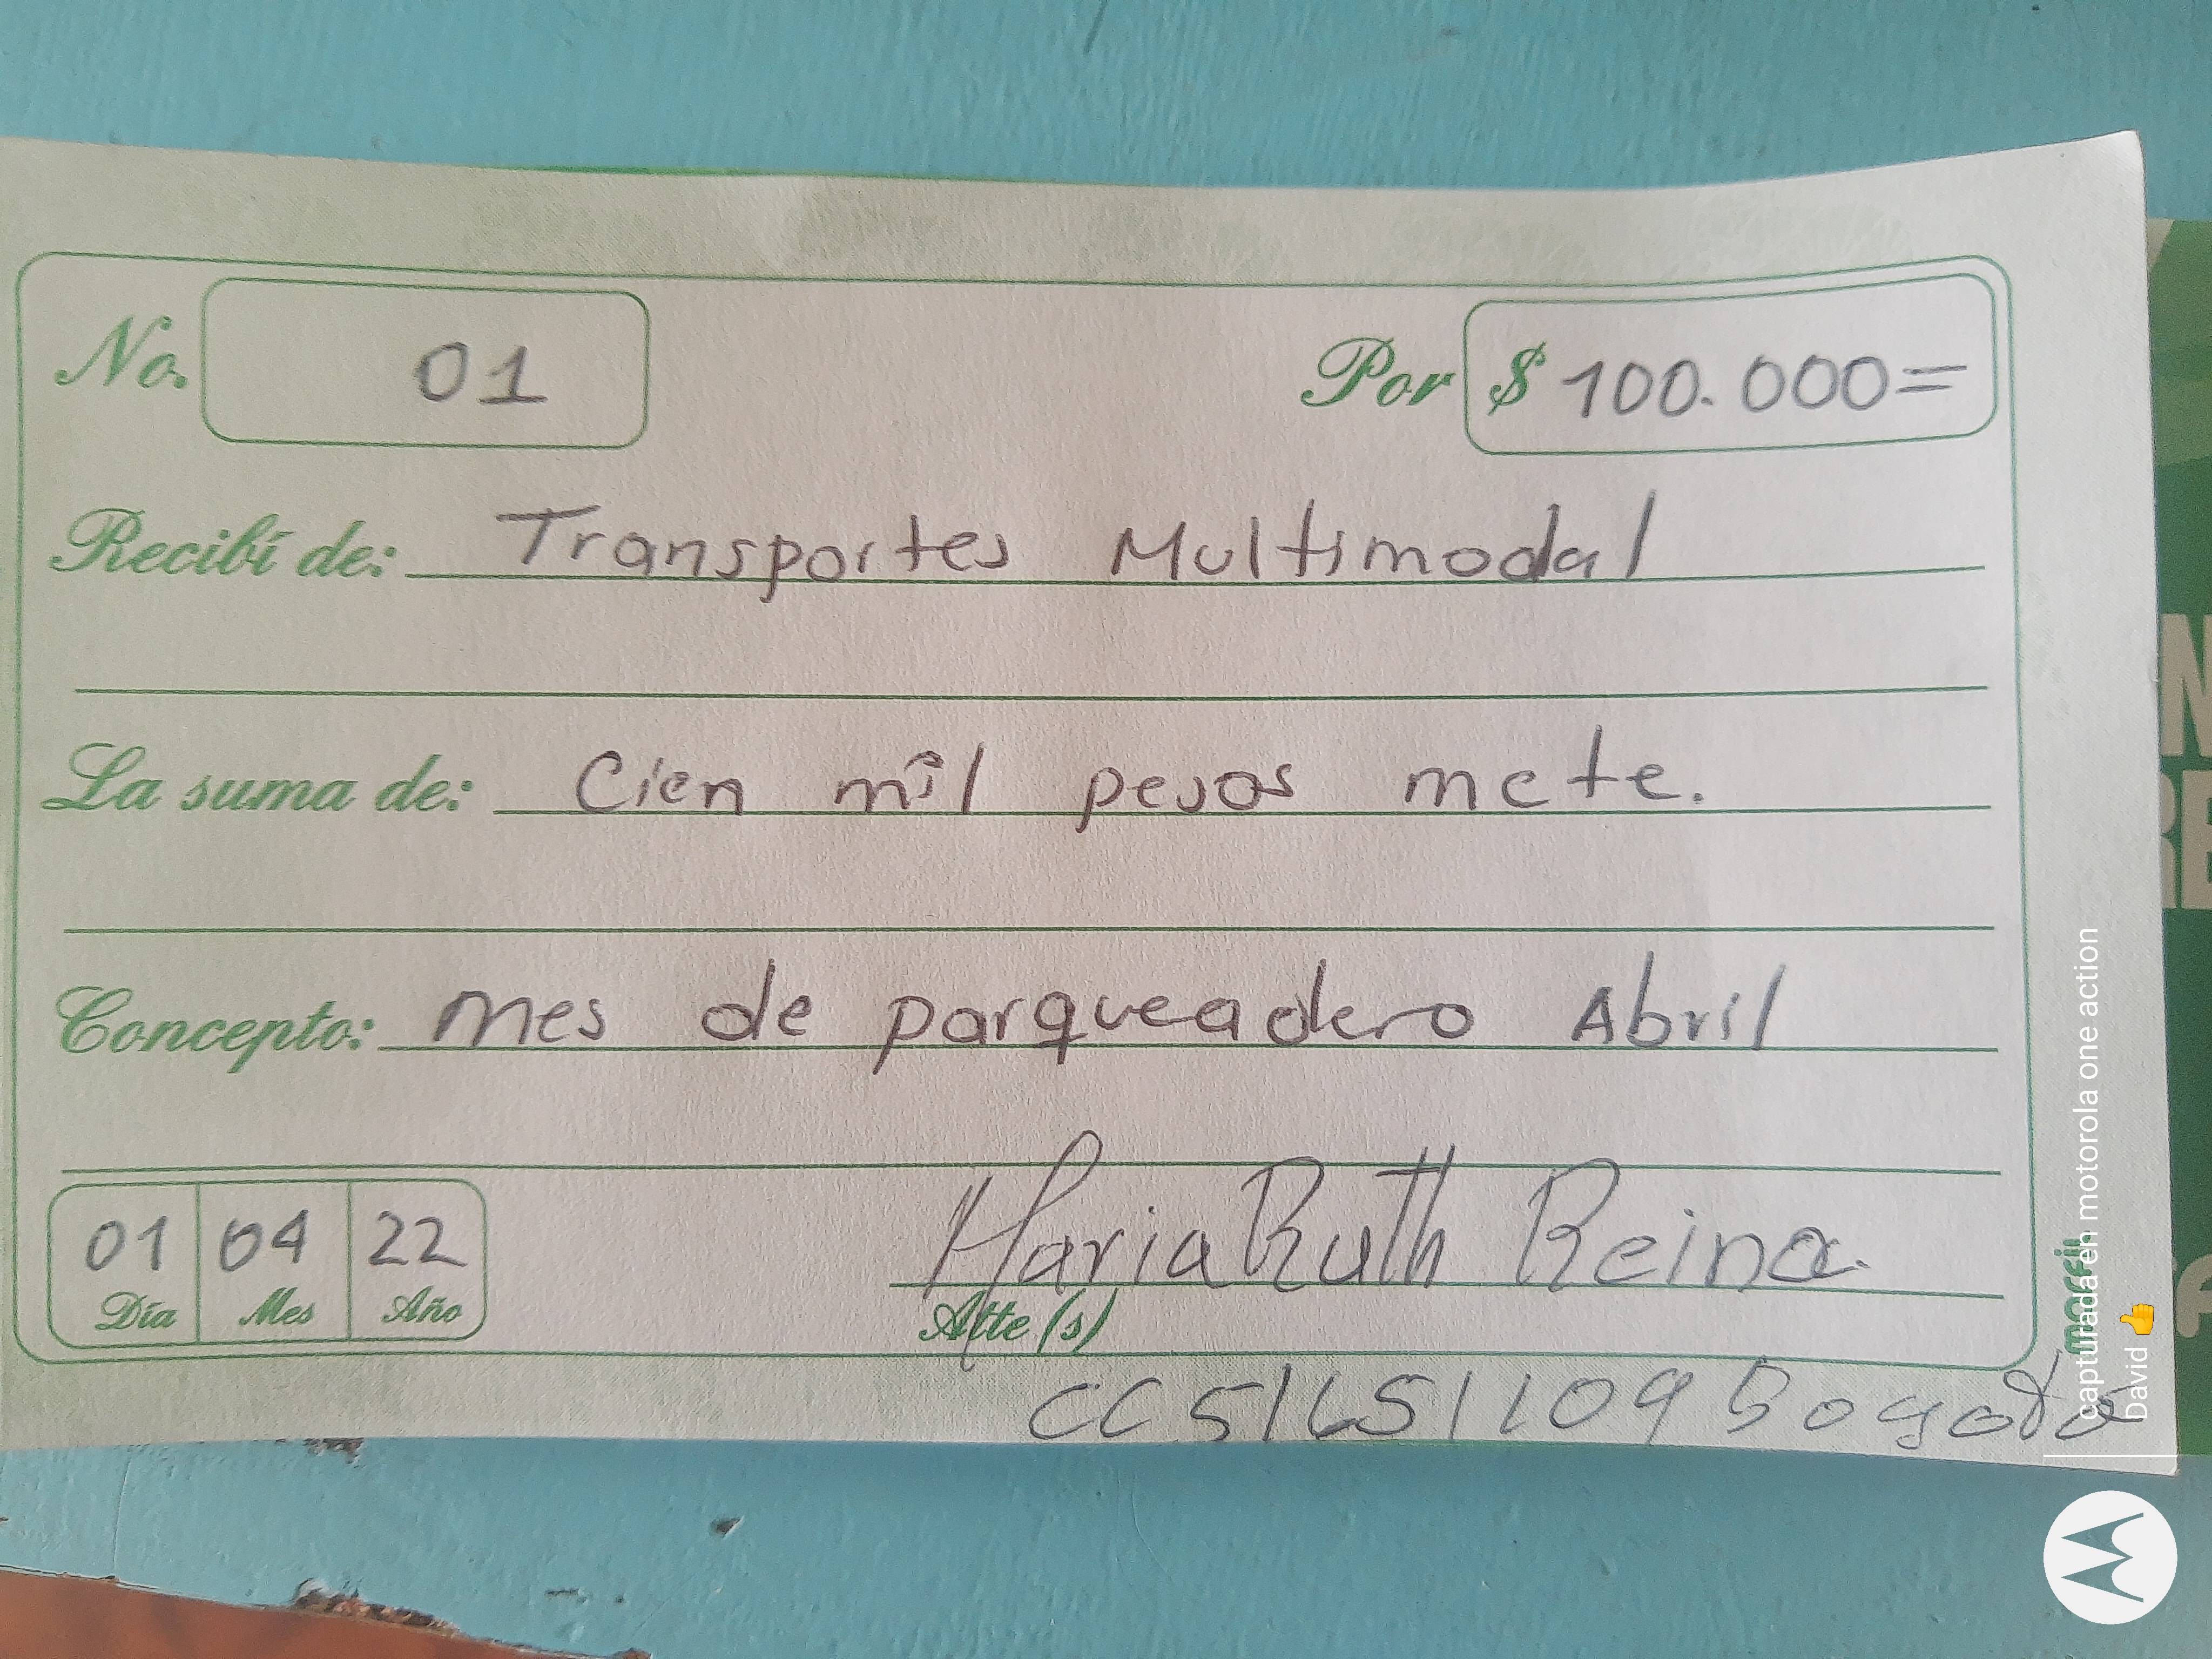 No. 01 Por $ 100.000=
Recibí de: Transportes Multimodal
La suma de: Cien mil pesos mcte.
Concepto: Mes de parqueadero Abril
01 04 22
Día Mes Año
Maria Ruth Reina
Atte(s)
CC 51651109 Bogota
capturada en motorola one action
David 👍